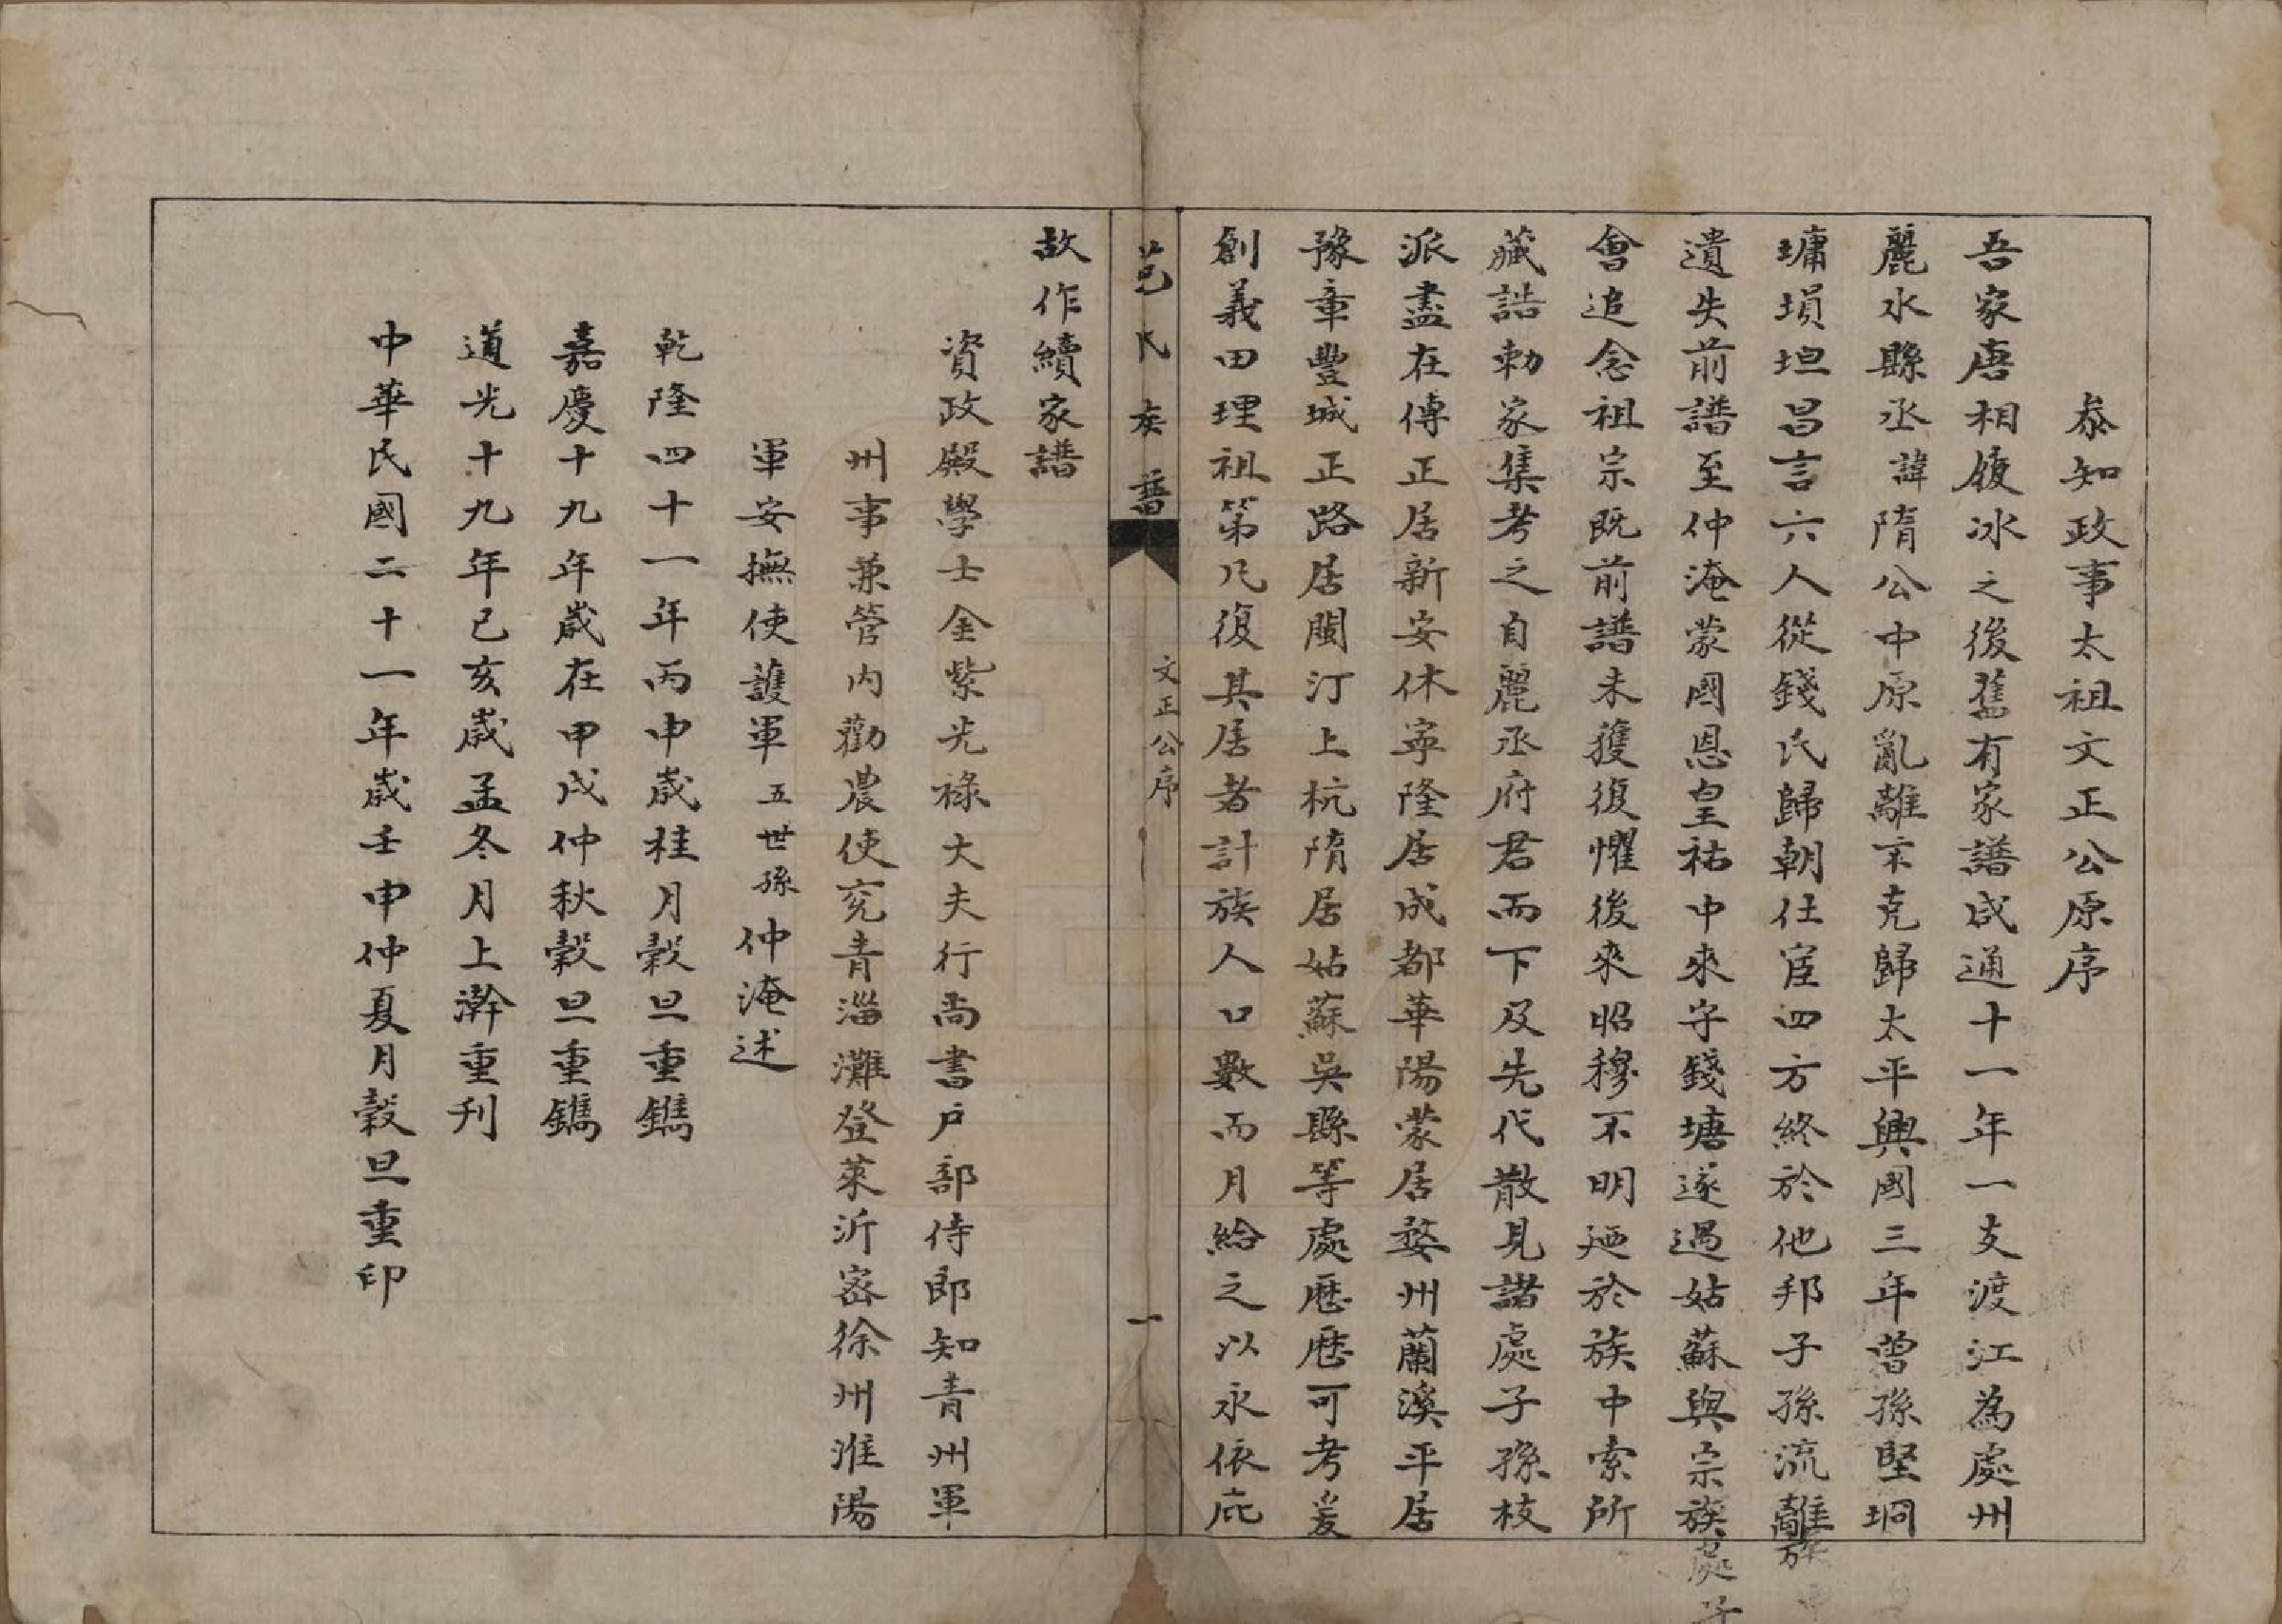 叅知政事太祖文正公原序
吾家唐相履冰之後舊有家譜咸通十一年一支渡江為處州
麗水縣丞諱隋公中原亂離不克歸太平興國三年曾孫堅坰
墉塤坦昌言六人從錢氏歸朝仕宦四方終於他邦子孫流離
遺失前譜至仲淹蒙國恩皇祐中來守錢塘遂過姑蘇與宗族
會追念祖宗既前譜未獲復懼後來昭穆不明廼於族中索所
藏誥勅家集考之自麗丞府君而下及先代散見諸處子孫枝
派盡在傳正居新安休寧隆居成都華陽蒙居婺州蘭溪平居
豫章豐城正路居閩汀上杭隋居姑蘇吳縣等處歷歷可考爰
創義田理祖第凡復其居者計族人口數而月給之以永依庇
范氏族譜
文正公序
一
故作續家譜
資政殿學士金紫光祿大夫行尚書戶部侍郎知青州軍
州事兼管內勸農使兗青淄濰登萊沂密徐州淮陽
軍安撫使護軍五世孫仲淹述
乾隆四十一年丙申歲桂月穀旦重鐫
嘉慶十九年歲在甲戌仲秋穀旦重鐫
道光十九年己亥歲孟冬月上澣重刊
中華民國二十一年歲壬申仲夏月穀旦重印